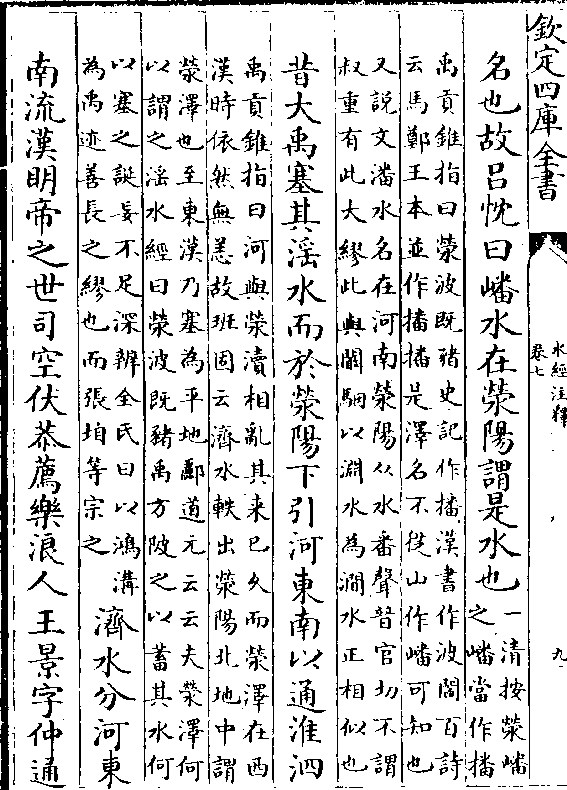 欽定四庫全書
水經注釋
卷七
九
名也故呂忱曰嶓水在滎陽謂是水也
一清按滎嶓
之嶓當作播
禹貢錐指曰滎波既豬史記作播漢書作波閻百詩
云馬鄭王本並作播播是澤名不從山作嶓可知也
又説文潘水名在河南滎陽从水番聲普官切不謂
叔重有此大繆此與闞駰以淵水為澗水正相似也
昔大禹塞其淫水而於滎陽下引河東南以通淮泗
禹貢錐指曰河與滎瀆相亂其来已久而滎澤在西
漢時依然無恙故班固云濟水軼出滎陽北地中謂
滎澤也至東漢乃塞為平地酈道元云云夫滎澤何
以謂之淫水經曰滎波既豬禹方陂之以蓄其水何
以塞之誕妄不足深辨全氏曰以鴻溝
為禹迹善長之繆也而張垍等宗之
濟水分河東
南流漢明帝之世司空伏恭薦樂浪人王景字仲通